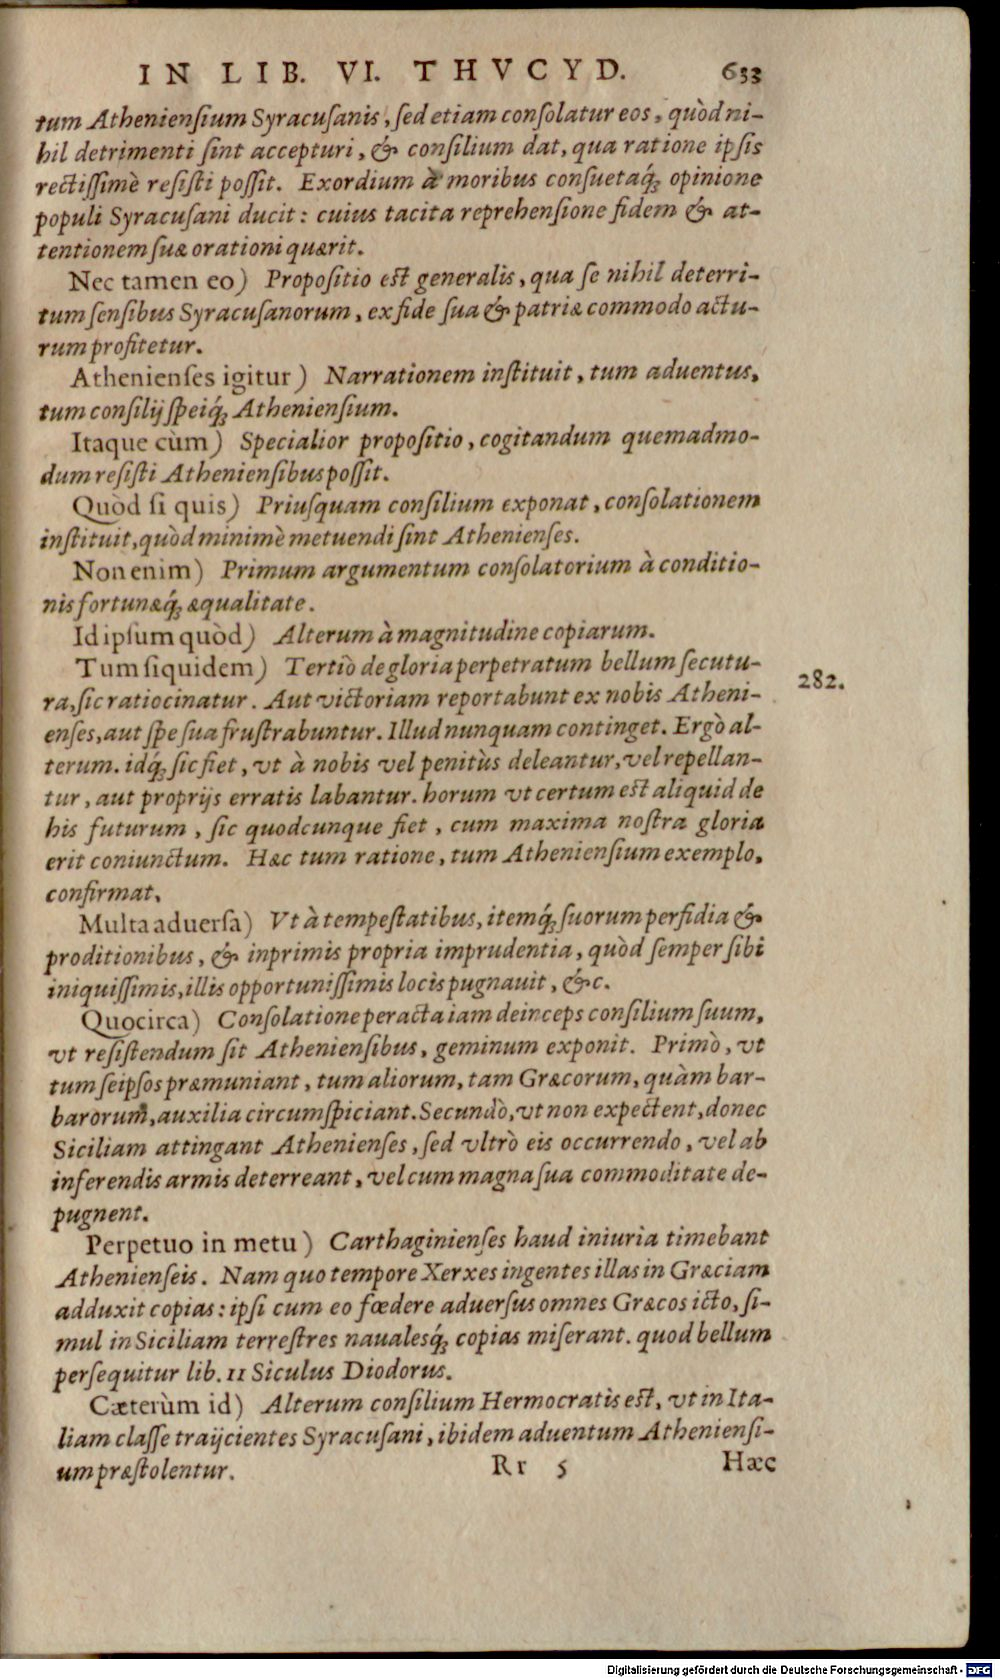 IN LIB. VI. THVCYD. 633
tum Athenienſium Syracuſanis, ſed etiam conſolatur eos, quòd ni-
hil detrimenti ſint accepturi, & conſilium dat, qua ratione ipſis
rectiſſimè reſiſti poſſit. Exordium à moribus conſuetaq́; opinione
populi Syracuſani ducit: cuius tacita reprehenſione fidem & at-
tentionem ſuæ orationi quærit.
Nec tamen eo) Propoſitio eſt generalis, qua ſe nihil deterri-
tum ſenſibus Syracuſanorum, ex fide ſua & patriæ commodo actu-
rum profitetur.
Athenienſes igitur) Narrationem inſtituit, tum aduentus,
tum conſilij ſpeiq́; Athenienſium.
Itaque cùm) Specialior propoſitio, cogitandum quemadmo-
dum reſiſti Athenienſibus poſſit.
Quòd ſi quis) Priuſquam conſilium exponat, conſolationem
inſtituit, quòd minimè metuendi ſint Athenienſes.
Non enim) Primum argumentum conſolatorium à conditio-
nis fortunæq́; æqualitate.
Id ipſum quòd) Alterum à magnitudine copiarum.
Tum ſiquidem) Tertiò de gloria perpetratum bellum ſecutu-
ra, ſic ratiocinatur. Aut victoriam reportabunt ex nobis Atheni- 282.
enſes, aut ſpe ſua fruſtrabuntur. Illud nunquam continget. Ergò al-
terum. idq́; ſic fiet, vt à nobis vel penitùs deleantur, vel repellan-
tur, aut proprijs erratis labantur. horum vt certum eſt aliquid de
his futurum, ſic quodcunque fiet, cum maxima noſtra gloria
erit coniunctum. Hæc tum ratione, tum Athenienſium exemplo,
confirmat.
Multa aduerſa) Vt à tempeſtatibus, itemq́; ſuorum perfidia &
proditionibus, & inprimis propria imprudentia, quòd ſemper ſibi
iniquiſſimis, illis opportuniſſimis locis pugnauit, &c.
Quocirca) Conſolatione peracta iam deinceps conſilium ſuum,
vt reſiſtendum ſit Athenienſibus, geminum exponit. Primò, vt
tum ſeipſos præmuniant, tum aliorum, tam Græcorum, quàm bar-
barorum, auxilia circumſpiciant. Secundò, vt non expectent, donec
Siciliam attingant Athenienſes, ſed vltrò eis occurrendo, vel ab
inferendis armis deterreant, vel cum magna ſua commoditate de-
pugnent.
Perpetuo in metu) Carthaginienſes haud iniuria timebant
Athenienſeis. Nam quo tempore Xerxes ingentes illas in Græciam
adduxit copias: ipſi cum eo fœdere aduerſus omnes Græcos icto, ſi-
mul in Siciliam terreſtres naualesq́; copias miſerant. quod bellum
perſequitur lib. 11 Siculus Diodorus.
Cæterùm id) Alterum conſilium Hermocratis eſt, vt in Ita-
liam claſſe traijcientes Syracuſani, ibidem aduentum Athenienſi-
um præſtolentur. Rr 5 Hæc
Digitalisierung gefördert durch die Deutsche Forschungsgemeinschaft - DFG